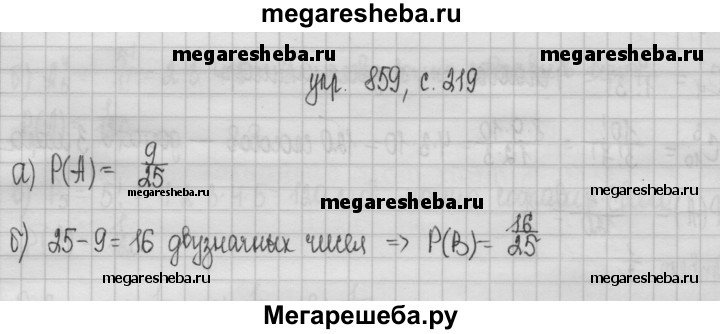 megaresheba.ru
megaresheba.ru megaresheba.ru
упр. 859, с. 219
а) P(A) = 9/25
megaresheba.ru megaresheba.ru
megaresheba.ru
б) 25-9=16 двузначных чисел => P(B)= 16/25
megaresheba.ru megaresheba.ru
Мегарешеба.ру